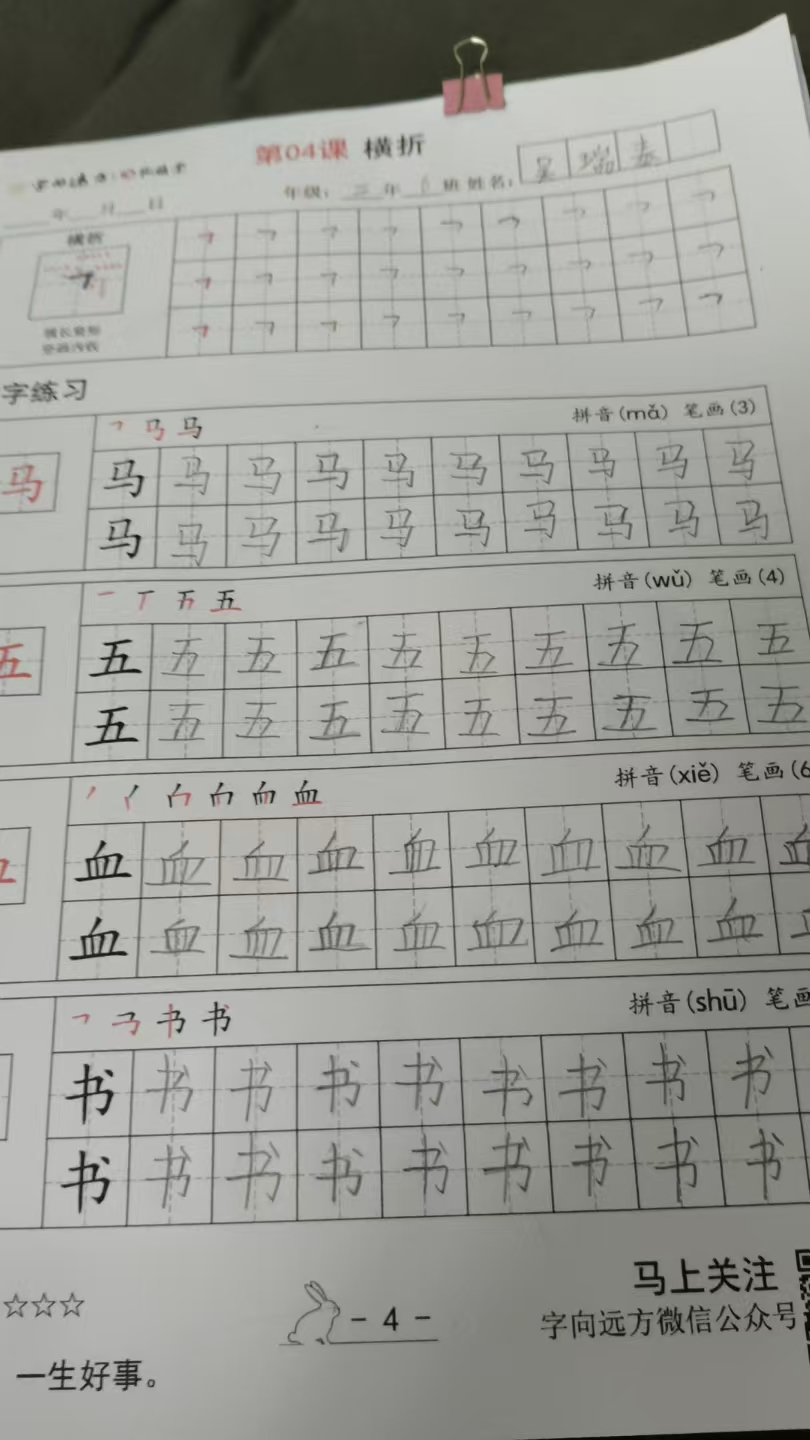 第04课 横折
年级： 三 年 6 班 姓名： 吴 瑞 泰
年 月 日
横折
字练习
㇕ 马 马 拼音(mǎ) 笔画(3)
马 马 马 马 马 马 马 马 马 马 马
马 马 马 马 马 马 马 马 马 马
一 丅 五 拼音(wǔ) 笔画(4)
五 五 五 五 五 五 五 五 五 五 五
五 五 五 五 五 五 五 五 五 五
血 拼音(xiě) 笔画(6
血 血 血 血 血 血 血 血 血 血
血 血 血 血 血 血 血 血 血
㇕ 书 书 拼音(shū) 笔画
书 书 书 书 书 书 书 书 书
书 书 书 书 书 书 书 书 书
☆☆☆
- 4 -
马上关注
字向远方微信公众号
一生好事。